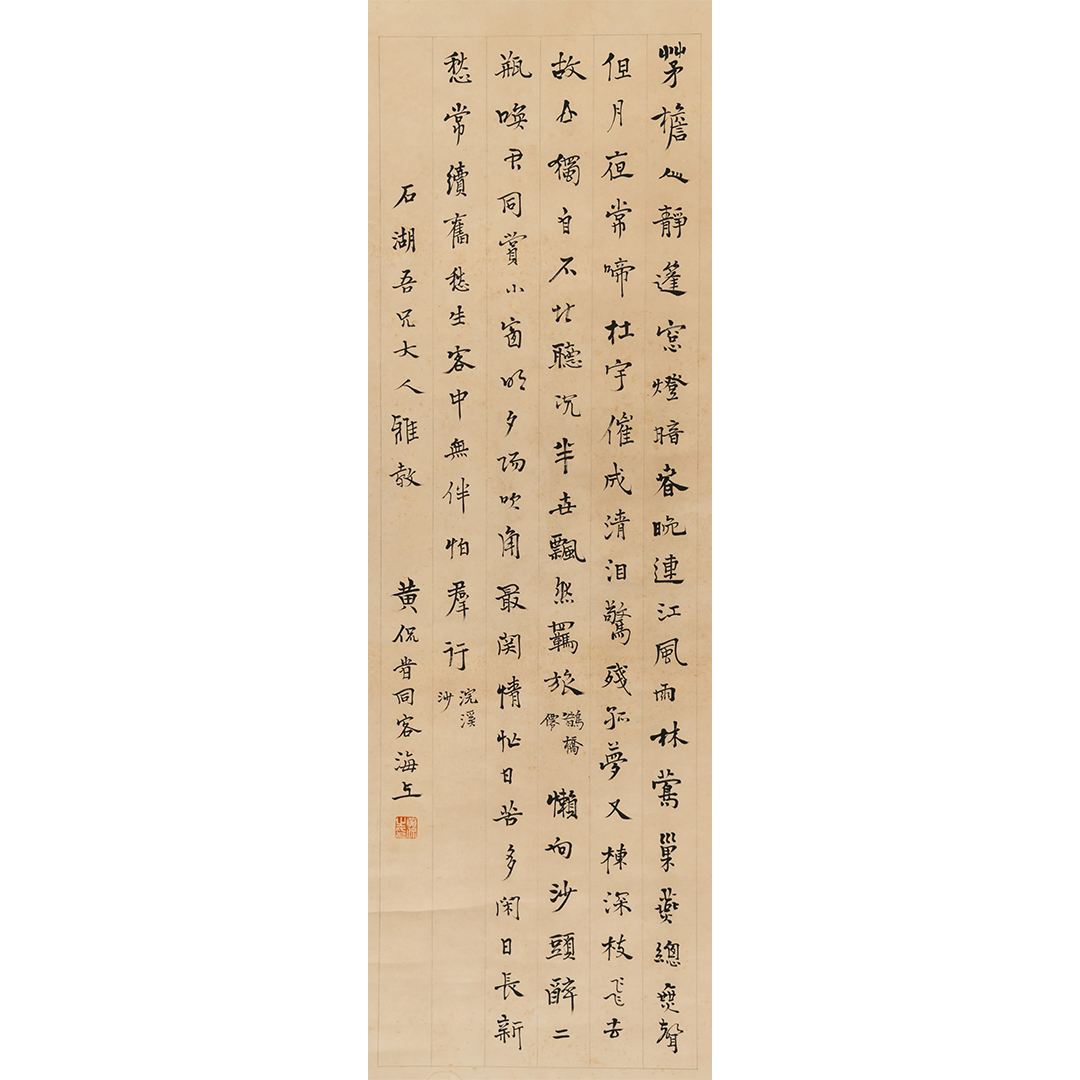 茅檐人靜蓬窓燈暗春晚連江風雨林鶯巢燕總無聲
但月夜常啼杜宇催成清泪驚殘孤夢又揀深枝飛去
故山獨自不堪聽況半世飄然羈旅鵲橋僊懶向沙頭醉二
瓶喚君同賞小窗明夕陽吹角最関情忙日苦多閑日長新
愁常續舊愁生客中無伴怕羣行浣溪沙
石湖吾兄大人雅教 黄侃昔同客海上